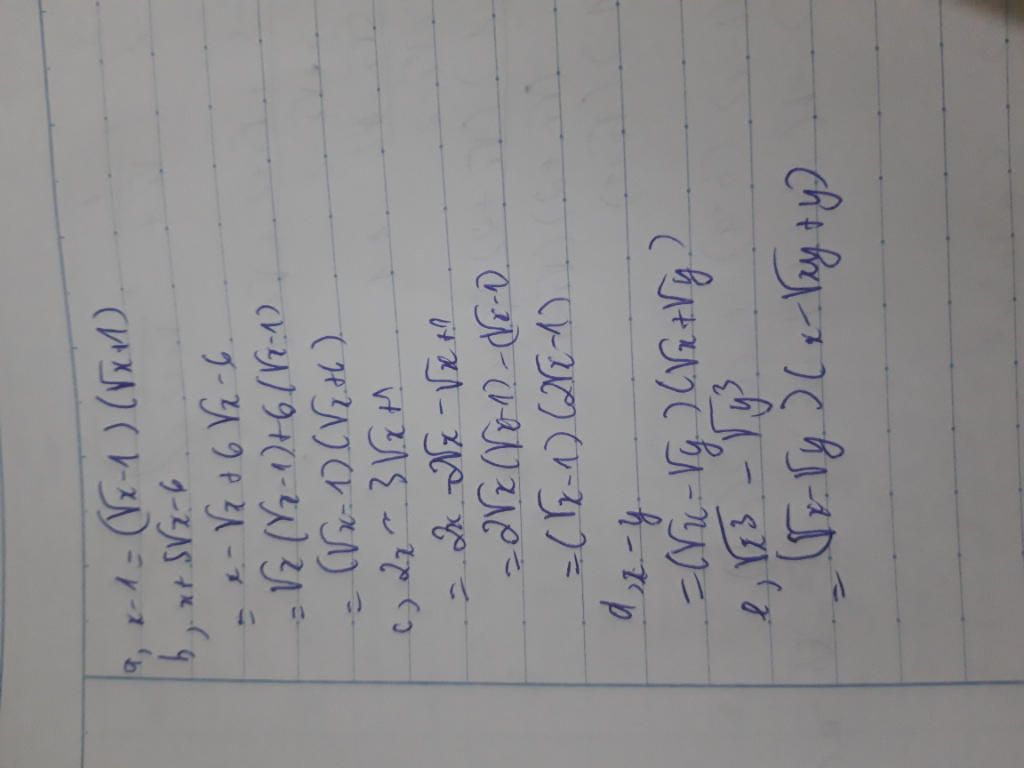 a, x-1 = (√x-1)(√x+1)
b, x+5√x-6
= x-√x+6√x-6
= √x(√x-1)+6(√x-1)
= (√x-1)(√x+6)
c, 2x-3√x+1
= 2x-2√x-√x+1
= 2√x(√x+1)-(√x-1)
= (√x-1)(2√x-1)
d, x-y
= (√x-√y)(√x+√y)
e, √x³-√y³
= (√x-√y)(x-√xy+y)